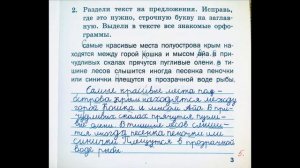 2. Раздели текст на предложения. Исправь,
где это нужно, строчную букву на заглав-
ную. Выдели в тексте все знакомые орфо-
граммы.
самые красивые места полуострова крым на-
ходятся между горой кошка и мысом айа в при-
чудливых скалах прячутся пугливые олени в ти-
шине лесов слышится иногда песенка пеночки
или синички плещутся в прозрачной воде рыбы
Самые красивые места по-
луострова Крым находятся между
горой Кошка и мысом Айа. В при-
чудливых скалах прячутся пугли-
вые олени. В тишине лесов слыши-
тся иногда песенка пеночки или
синички. Плещутся в прозрачной
воде рыбы.
3
5.